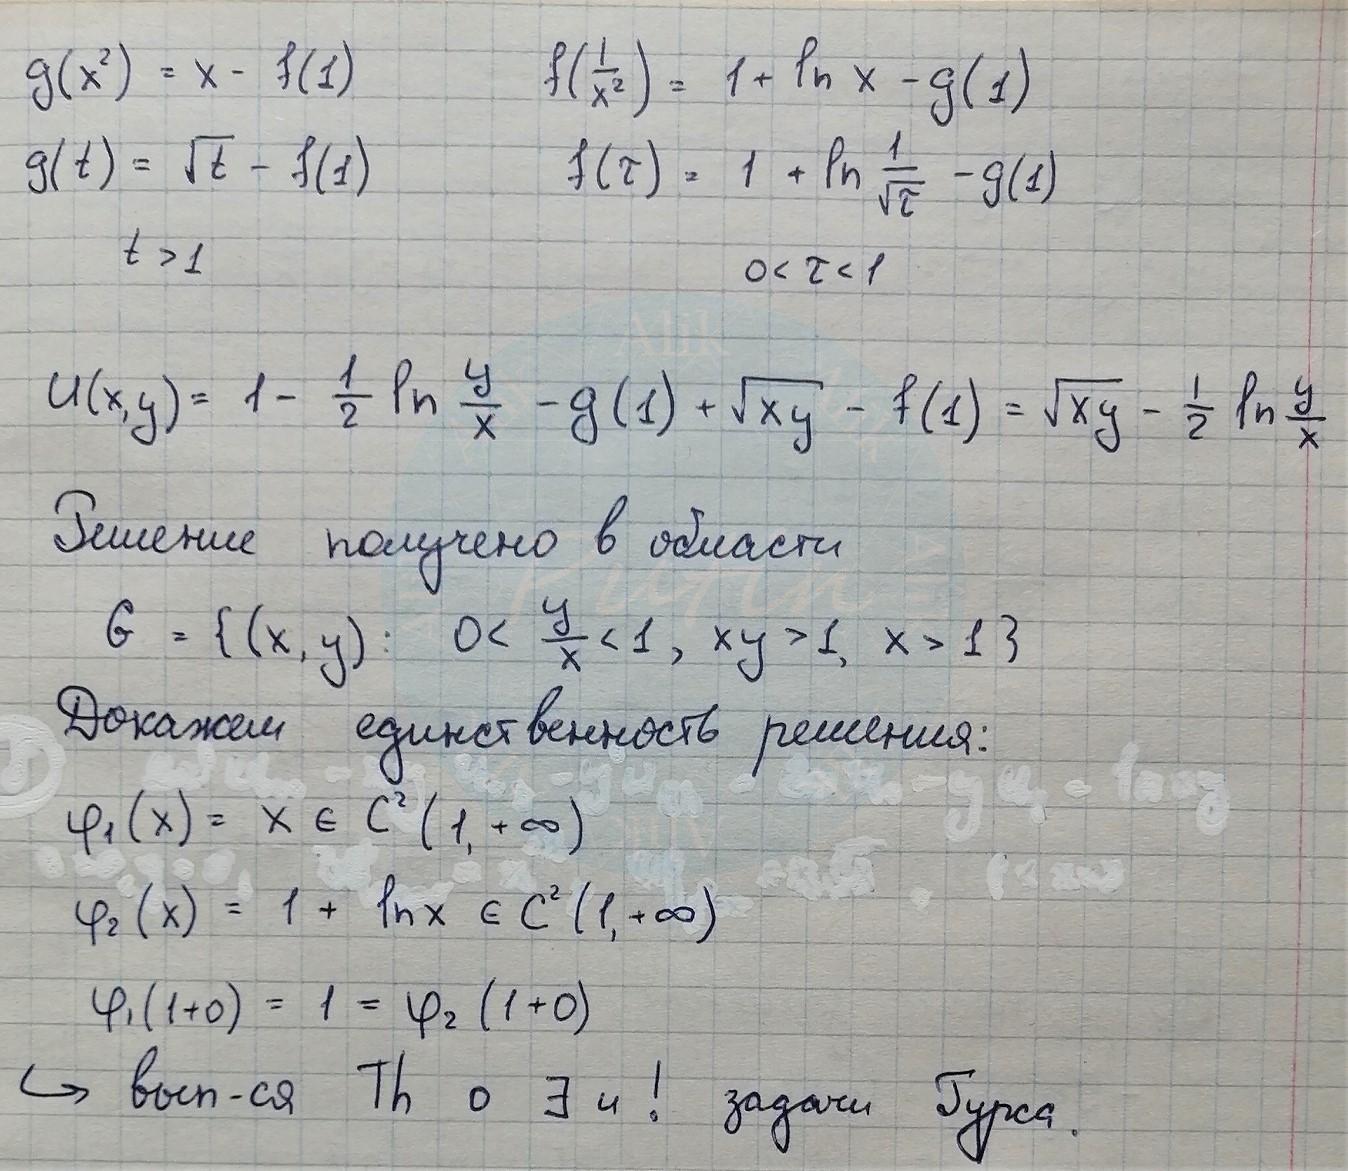 g(x²) = x - f(1)    f(1/x²) = 1 + ln x - g(1)
g(t) = √t - f(1)    f(τ) = 1 + ln 1/√τ - g(1)
t > 1    0 < τ < 1
Alik
U(x,y) = 1 - 1/2 ln y/x - g(1) + √xy - f(1) = √xy - 1/2 ln y/x
Решение получено в области
G = {(x, y): 0 < y/x < 1, xy > 1, x > 1}
Докажем единственность решения:
φ₁(x) = x ∈ C²(1, +∞)
φ₂(x) = 1 + ln x ∈ C²(1, +∞)
φ₁(1+0) = 1 = φ₂(1+0)
↪ вып-ся Th о ∃ и ! задачи Гурса.